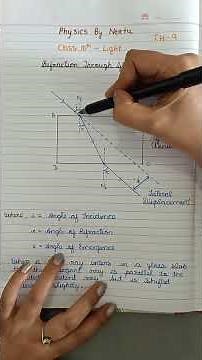 Physics By Neetu
Class 10th - Light
CH-9
Refraction Through
A
Lateral
Displacement
where, i = Angle of Incidence
r = Angle of Refraction
e = Angle of Emergence
When a ray enters in a glass slab
emergent ray is parallel to the
incident ray but is shifted
slightly.